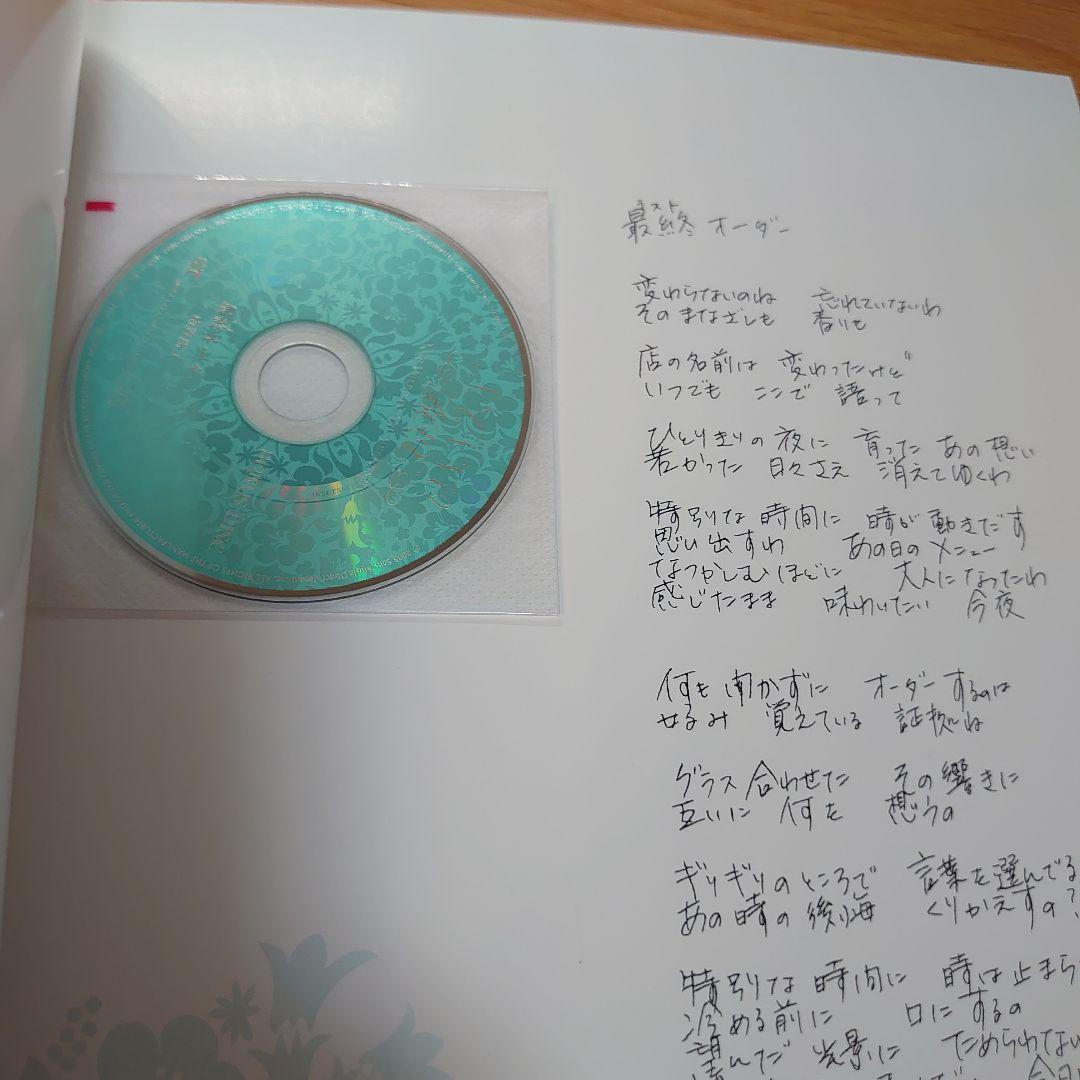 最終オーダー
スト
変わらないのね 忘れていないわ
そのまなざしも 香りも
店の名前は 変わったけど
いつでも ここで 語って
ひとりきりの夜に 育った あの想い
若かった 日々さえ 消えてゆくわ
特別な 時間に 時が 動きだす
思い出すわ あの日の メニュー
なつかしむほどに 大人になったわ
感じたまま 味わいたい 今夜
何も 聞かずに オーダーするのは
好み 覚えている 証拠ね
グラス 合わせた その響きに
互いに 何を 想うの
ギリギリのところで 言葉を選んでる
あの時の 後悔 くりかえすの?
特別な 時間に 時は 止まら
冷める前に 口にするの
望んだ 光景に ためられない
今日
© 2005 Sony Music Direct (Japan) Inc. ALL RIGHTS OF THE MANUFACTURER AND